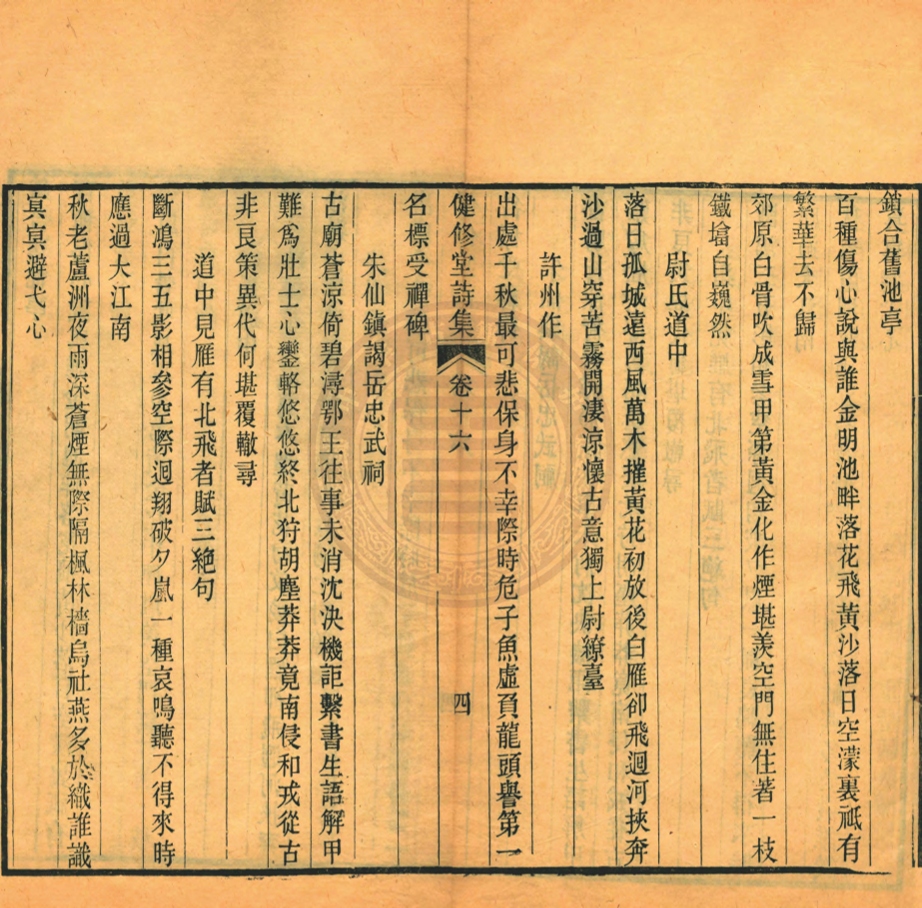 鎖合舊池亭
百種傷心說與誰金明池畔落花飛黃沙落日空濛裏祗有
繁華去不歸
郊原白骨吹成雪甲第黃金化作煙堪羨空門無住著一枝
鐵墖自巍然
尉氏道中
落日孤城遠西風萬木摧黃花初放後白雁卻飛迴河挾奔
沙過山穿苦霧開淒涼懷古意獨上尉繚臺
許州作
出處千秋最可悲保身不幸際時危子魚虛負龍頭譽第一
健修堂詩集 卷十六 四
名標受禪碑
朱仙鎮謁岳忠武祠
古廟蒼涼倚碧潯鄂王往事未消沈決機詎繫書生語解甲
難為壯士心鑾輅悠悠終北狩胡塵莽莽竟南侵和戎從古
非良策異代何堪覆轍尋
道中見雁有北飛者賦三絕句
斷鴻三五影相參空際迴翔破夕嵐一種哀鳴聽不得來時
應過大江南
秋老蘆洲夜雨深蒼煙無際隔楓林檣烏社燕多於織誰識
冥冥避弋心